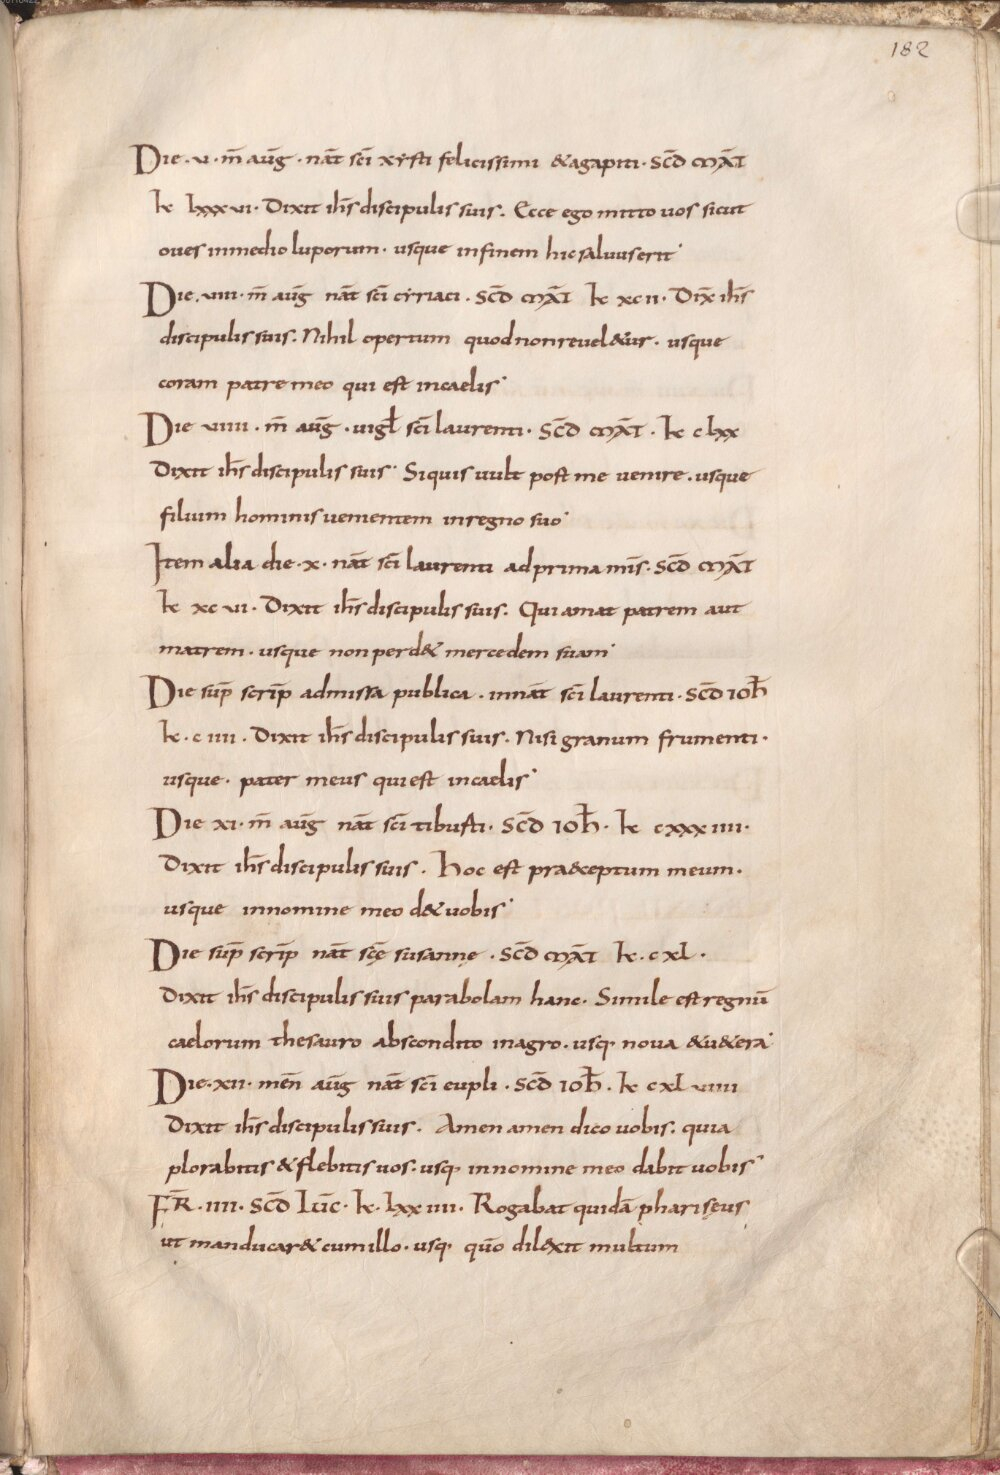 182
Die · v · m̄ aūg · nāt sc̄i xẏsti felicissimi & agapiti · sc̄d mx̄t
k̄ lxxxvi · Dixit ih̄s discipulis suis. Ecce ego mitto uos sicut
oues in medio luporum · usque in finem hic saluus erit
Die · viii · m̄ aūg nāt sc̄i cẏriaci · sc̄d mx̄t k̄ xcii · Dix̄ ih̄s
discipulis suis. Nihil opertum quod non reuel&ur · usque
coram patre meo qui est in caelis
Die viiii · m̄ aūg · uigł sc̄i laurenti · sc̄d mx̄t · k̄ clxx
dixit ih̄s discipulis suis Si quis uult post me uenire · usque
filium hominis uenientem in regno suo
Item alia die · x · nāt sc̄i laurenti ad prima mis̄ · sc̄d mx̄t
k̄ xcvi · Dixit ih̄s discipulis suis. Qui amat patrem aut
matrem · usque non perd& mercedem suam
Die sup̄ scrip̄ ad missa publica · in nāt sc̄i laurenti · sc̄d ioh̄
k̄ · ciiii · Dixit ih̄s discipulis suis. Nisi granum frumenti ·
usque · pater meus qui est in caelis
Die xi · m̄ aūg nāt sc̄i tiburti · sc̄d ioh̄ · k̄ cxxxiiii ·
Dixit ih̄s discipulis suis . hoc est pra&ceptum meum ·
usque in nomine meo d& uobis
Die sup̄ scrip̄ nāt sc̄ę susannę · sc̄d mx̄t k̄ · cxl ·
Dixit ih̄s discipulis suis parabolam hanc. Simile est regnū
caelorum thesauro abscondito in agro · usq· noua & u&era
Die · xii · men̄ aūg nāt sc̄i eupli · sc̄d ioh̄ · k̄ cxlviiii
Dixit ih̄s discipulis suis . Amen amen dico uobis. quia
plorabitis & flebitis uos · usq· in nomine meo dabit uobis
FR̄ · iiii · sc̄d luc̄ · k̄ · lxxiiii · Rogabat quidā phariseus
ut manducar& cum illo · usq· qūo dil&xit multum